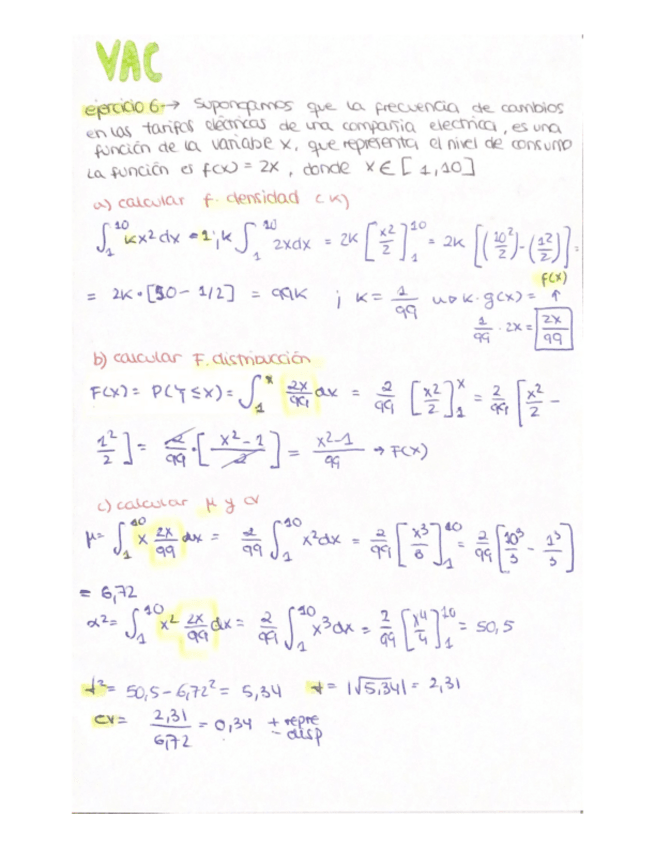 VAC
ejercicio 6 → Supongamos que la frecuencia de cambios
en las tarifas eléctricas de una compañia electrica, es una
función de la variable x, que representa el nivel de consumo
La función es f(x) = 2x, donde x ∈ [1,10]
a) calcular f. densidad (K)
∫₁¹⁰ kx2 dx = 1; k ∫₁¹⁰ 2xdx = 2K [x²/2]₁¹⁰ = 2K [(10²/2)-(1²/2)] =
= 2K·[50 - 1/2] = 99K ; K = 1/99 k·g(x) = f(x) ↑
1/99 · 2x = 2x/99
b) calcular F. distribución
F(x) = P(Y ≤ x) = ∫₁ˣ 2x/99 dx = 2/99 [x²/2]₁ˣ = 2/99 [x²/2 -
1²/2] = 2/99 · [x²-1/2] = x²-1/99 → F(x)
c) calcular μ y cv
μ = ∫₁¹⁰ x 2x/99 dx = 2/99 ∫₁¹⁰ x²dx = 2/99 [x³/3]₁¹⁰ = 2/99 [10³/3 - 1³/3]
= 6,72
α² = ∫₁¹⁰ x² 2x/99 dx = 2/99 ∫₁¹⁰ x³dx = 2/99 [x⁴/4]₁¹⁰ = 50,5
² = 50,5 - 6,72² = 5,34 = |√5,34| = 2,31
CV = 2,31/6,72 = 0,34 + repre
- disp